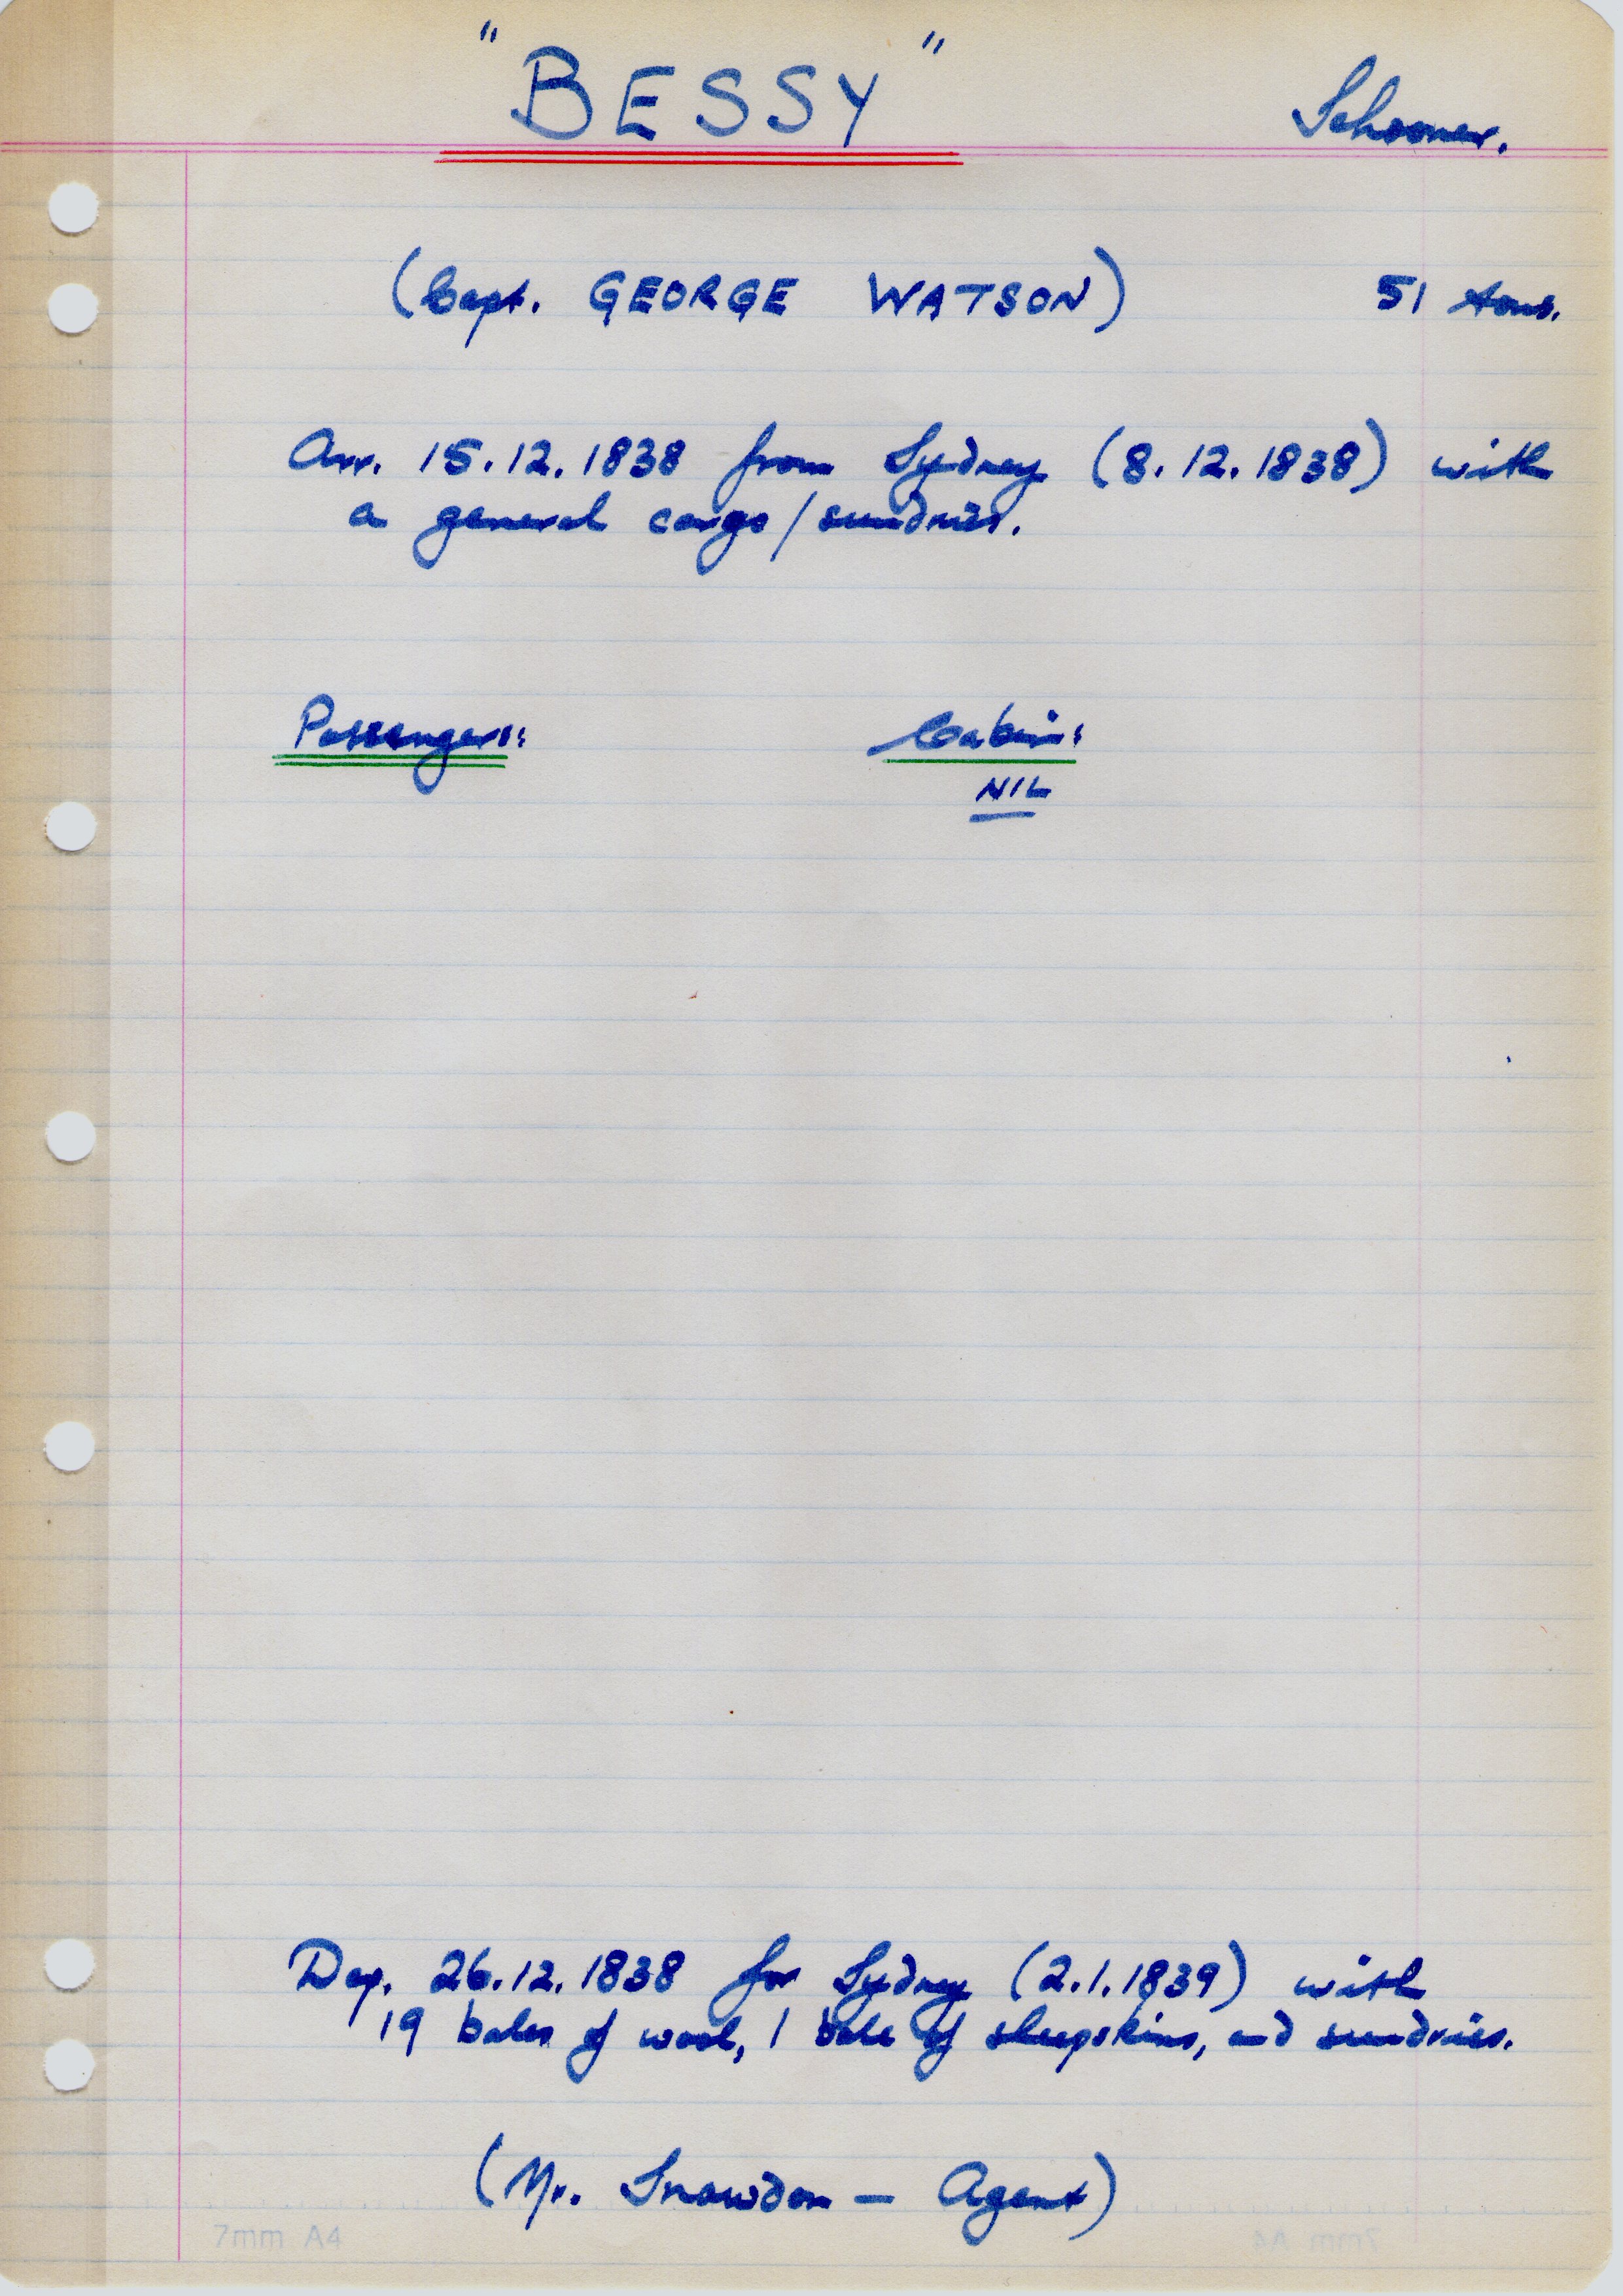 "BESSY" Schooner.
(Capt. GEORGE WATSON) 51 tons.
Arr. 15.12.1838 from Sydney (8.12.1838) with
a general cargo/sundries.
Passengers: Cabin:
NIL
Dep. 26.12.1838 for Sydney (2.1.1839) with
19 bales of wool, 1 bale of sheepskins, and sundries.
(Mr. Snowdon — Agent)
7mm A4